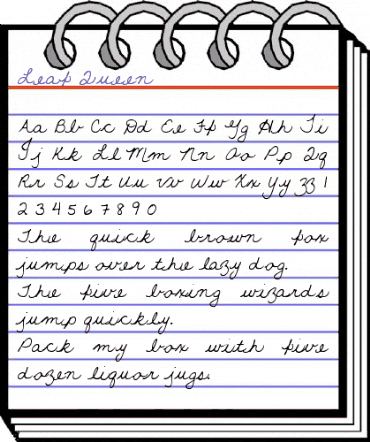 Leaf Queen
Aa Bb Cc Dd Ee Ff Gg Hh Ii
Jj Kk Ll Mm Nn Oo Pp Qq
Rr Ss Tt Uu Vv Ww Xx Yy Zz 1
2 3 4 5 6 7 8 9 0
The quick brown fox
jumps over the lazy dog.
The five boxing wizards
jump quickly.
Pack my box with five
dozen liquor jugs.